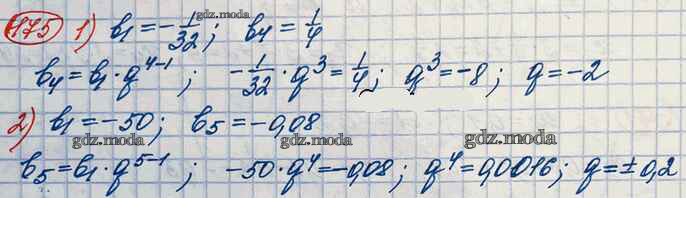 1175 1) b₁ = -1/32; b₄ = 1/4
gdz.moda
b₄ = b₁ · q⁴⁻¹; -1/32 · q³ = 1/4; q³ = -8; q = -2
2) b₁ = -50; b₅ = -0,08
gdz.moda gdz.moda gdz.moda
b₅ = b₁ · q⁵⁻¹; -50 · q⁴ = -0,08; q⁴ = 0,0016; q = ± 0,2